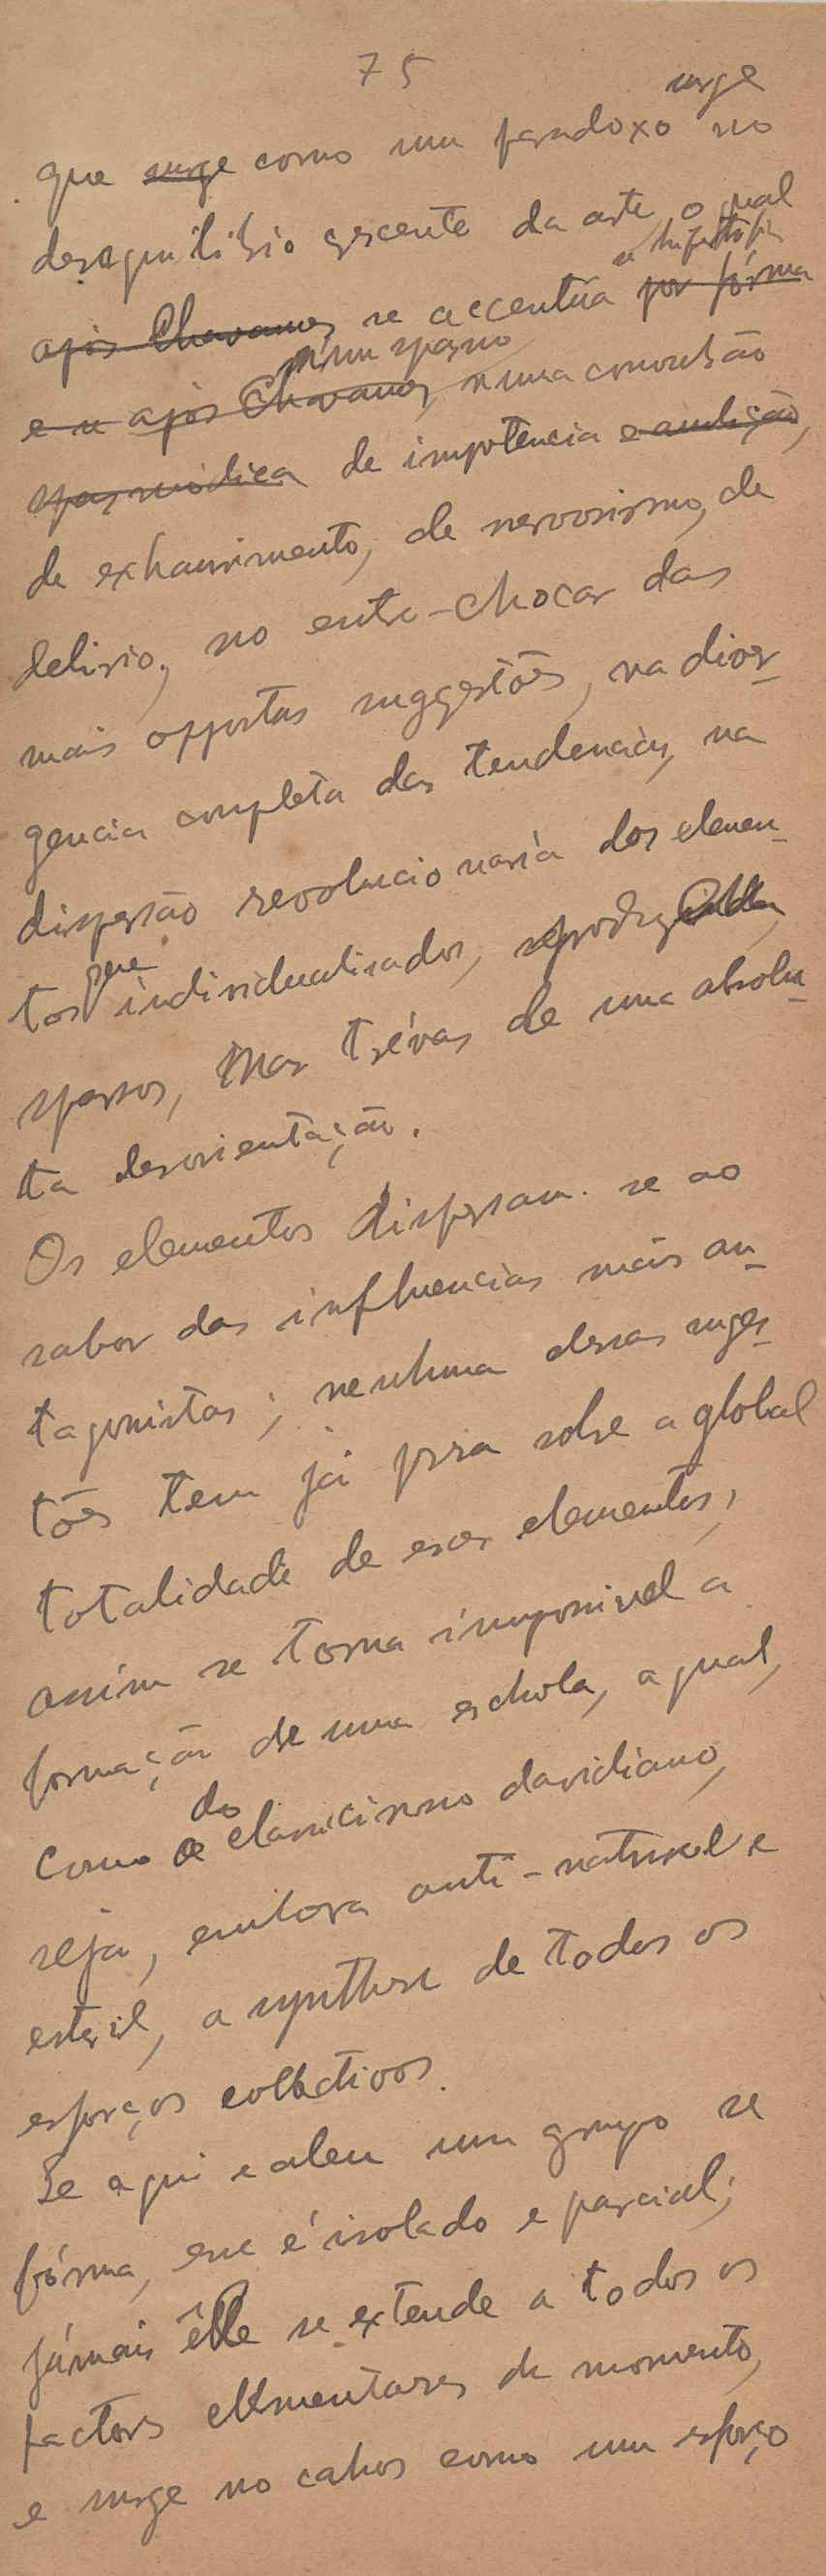 75
urge
que surge como um paradoxo no
desequilibrio crescente da arte, o qual
se hypertrophia
após Chavannes se accentúa por fórma
num spasmo
e se após Chavannes, numa convulsão
spasmodica de impotencia e ambição,
de exhaurimento, de nervosismo, de
delirio, no entre-chocar das
mais oppostas suggestões, na diver-
gencia completa das tendencias, na
dispersão revolucionaria dos elemen-
que
tos individualisados,
sparsos, nas trévas de uma absolu-
ta desorientação.
Os elementos dispersam-se ao
sabor das influencias mais an-
tagonistas; nenhuma dessas suges-
tões tem já força sobre a global
totalidade de esses elementos;
assim se torna impossivel a
formação de uma eschola, a qual,
do
como o classicismo davidiano,
seja, embora anti-natural e
esteril, a synthese de todos os
esforços collectivos.
Se aqui e alem um grupo se
fórma, esse é isolado e parcial;
jámais êlle se extende a todos os
factores elementares do momento,
e surge no cahos como um esforço